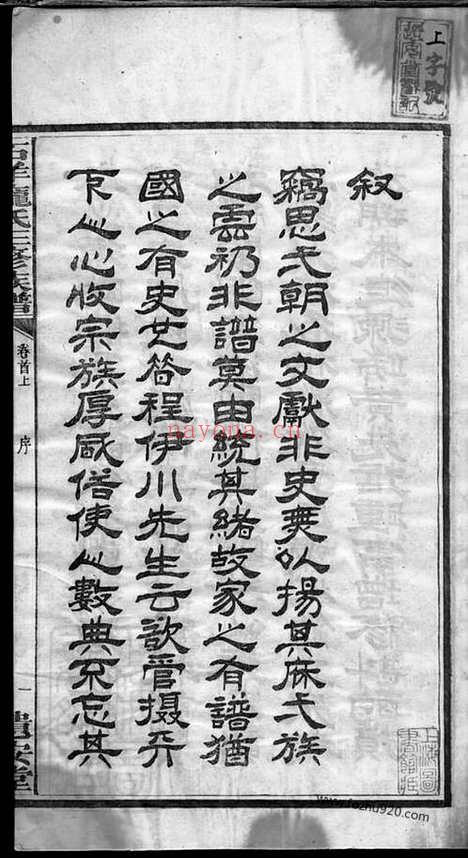 上字號
叙
竊思弌朝之文獻非史無以揚其庥弌族
之雲礽非譜莫由統其緒故家之有譜猶
國之有史也昔程伊川先生云欲管攝天
下人心收宗族厚風俗使人數典不忘其
氏三修族譜
卷首上
序
一
堂
上海圖書館藏
nayona.cn
www.fozhu920.com